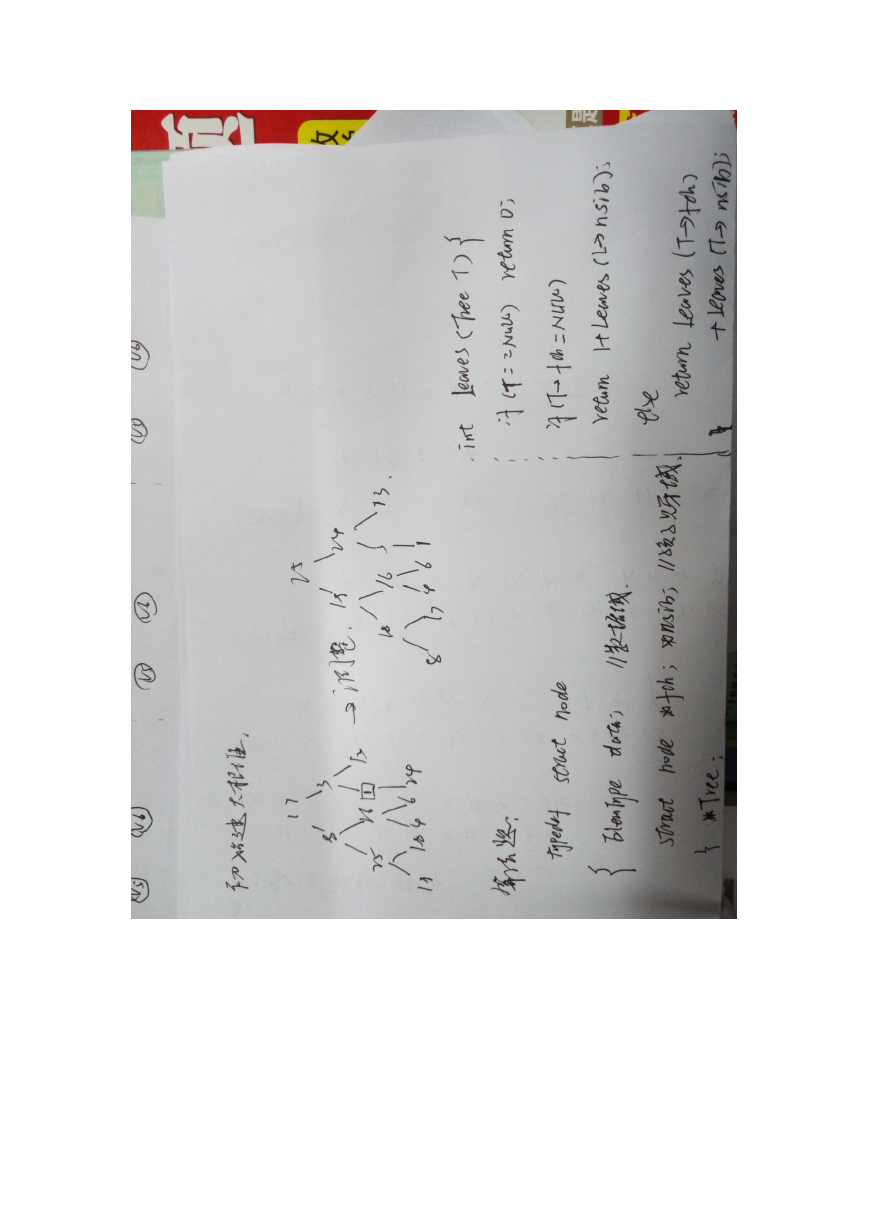 V5 V6 V5 V6 V6
初始建大根堆.
17
8 3
25 16 1 13
18 4 6 24
→调整.
25
24
16 13.
8 17 4 6 1
算法题:
typedef struct node
{ ElemType data; //数据域.
struct node *fch; *nsib; //孩子兄弟域.
} *Tree;
int Leaves (Tree T) {
if (T==NULL) return 0;
if (T→fch=NULL)
return 1+Leaves (L→nsib);
else
return Leaves (T→fch)
+ Leaves (T→nsib);
}